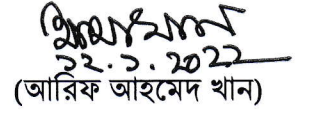 ১২.১.২০২২
(আরিফ আহমেদ খান)